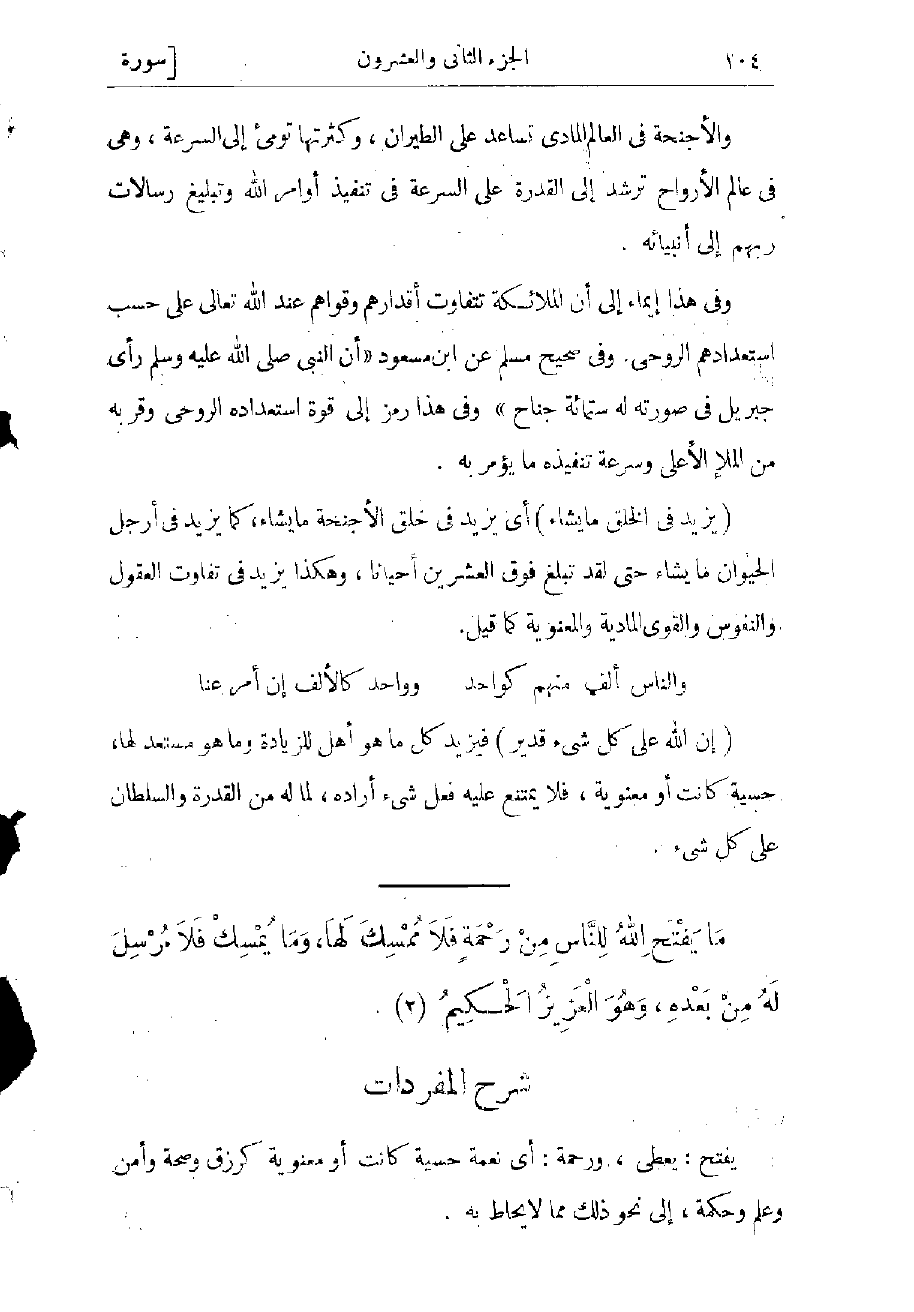 ١٠٤ الجزء الثانى والعشرون [سورة
والأجنحة فى العالم المادى تساعد على الطيران ، وكثرتها تومئ إلى السرعة ، وهى
فى عالم الأرواح ترشد إلى القدرة على السرعة فى تنفيذ أوامر الله وتبليغ رسالات
ربهم إلى أنبيائه .
وفى هذا إيماء إلى أن الملائكة تتفاوت أقدارهم وقواهم عند الله تعالى على حسب
استعدادهم الروحى. وفى صحيح مسلم عن ابن مسعود «أن النبى صلى الله عليه وسلم رأى
جبريل فى صورته له ستمائة جناح » وفى هذا رمز إلى قوة استعداده الروحى وقربه
من الملإ الأعلى وسرعة تنفيذه ما يؤمر به .
( يزيد فى الخلق ما يشاء ) أى يزيد فى خلق الأجنحة ما يشاء، كما يزيد فى أرجل
الحيوان ما يشاء حتى لقد تبلغ فوق العشرين أحيانا ، وهكذا يزيد فى تفاوت العقول
والنفوس والقوى المادية والمعنوية كما قيل.
والناس ألف منهم كواحد وواحد كالألف إن أمر عنا
( إن الله على كل شىء قدير ) فيزيد كل ما هو أهل للزيادة وما هو مستعد لها،
حسية كانت أو معنوية ، فلا يمتنع عليه فعل شىء أراده ، لما له من القدرة والسلطان
على كل شىء .
مَا يَفْتَحِ اللهُ لِلنَّاسِ مِنْ رَحْمَةٍ فَلاَ مُمْسِكَ لَهَا، وَمَا يُمْسِكْ فَلاَ مُرْسِلَ
لَهُ مِنْ بَعْدِهِ ، وَهُوَ الْعَزِيزُ الْحَكِيمُ (٢) .
شرح المفردات
يفتح : يعطى ، ورحمة : أى نعمة حسية كانت أو معنوية كرزق وصحة وأمن
وعلم وحكمة ، إلى نحو ذلك مما لا يحاط به .